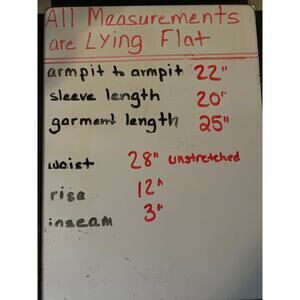 All Measurements
are Lying Flat
armpit to armpit 22"
sleeve length 20"
garment length 25"
waist 28" unstretched
rise 12"
inseam 3"